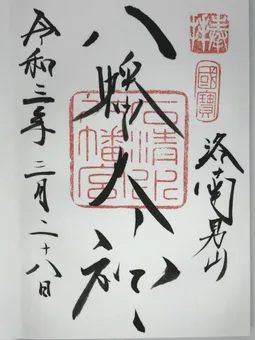 國寶
洛南男山
八幡大神
石清水
八幡宮
令和三年三月二十八日